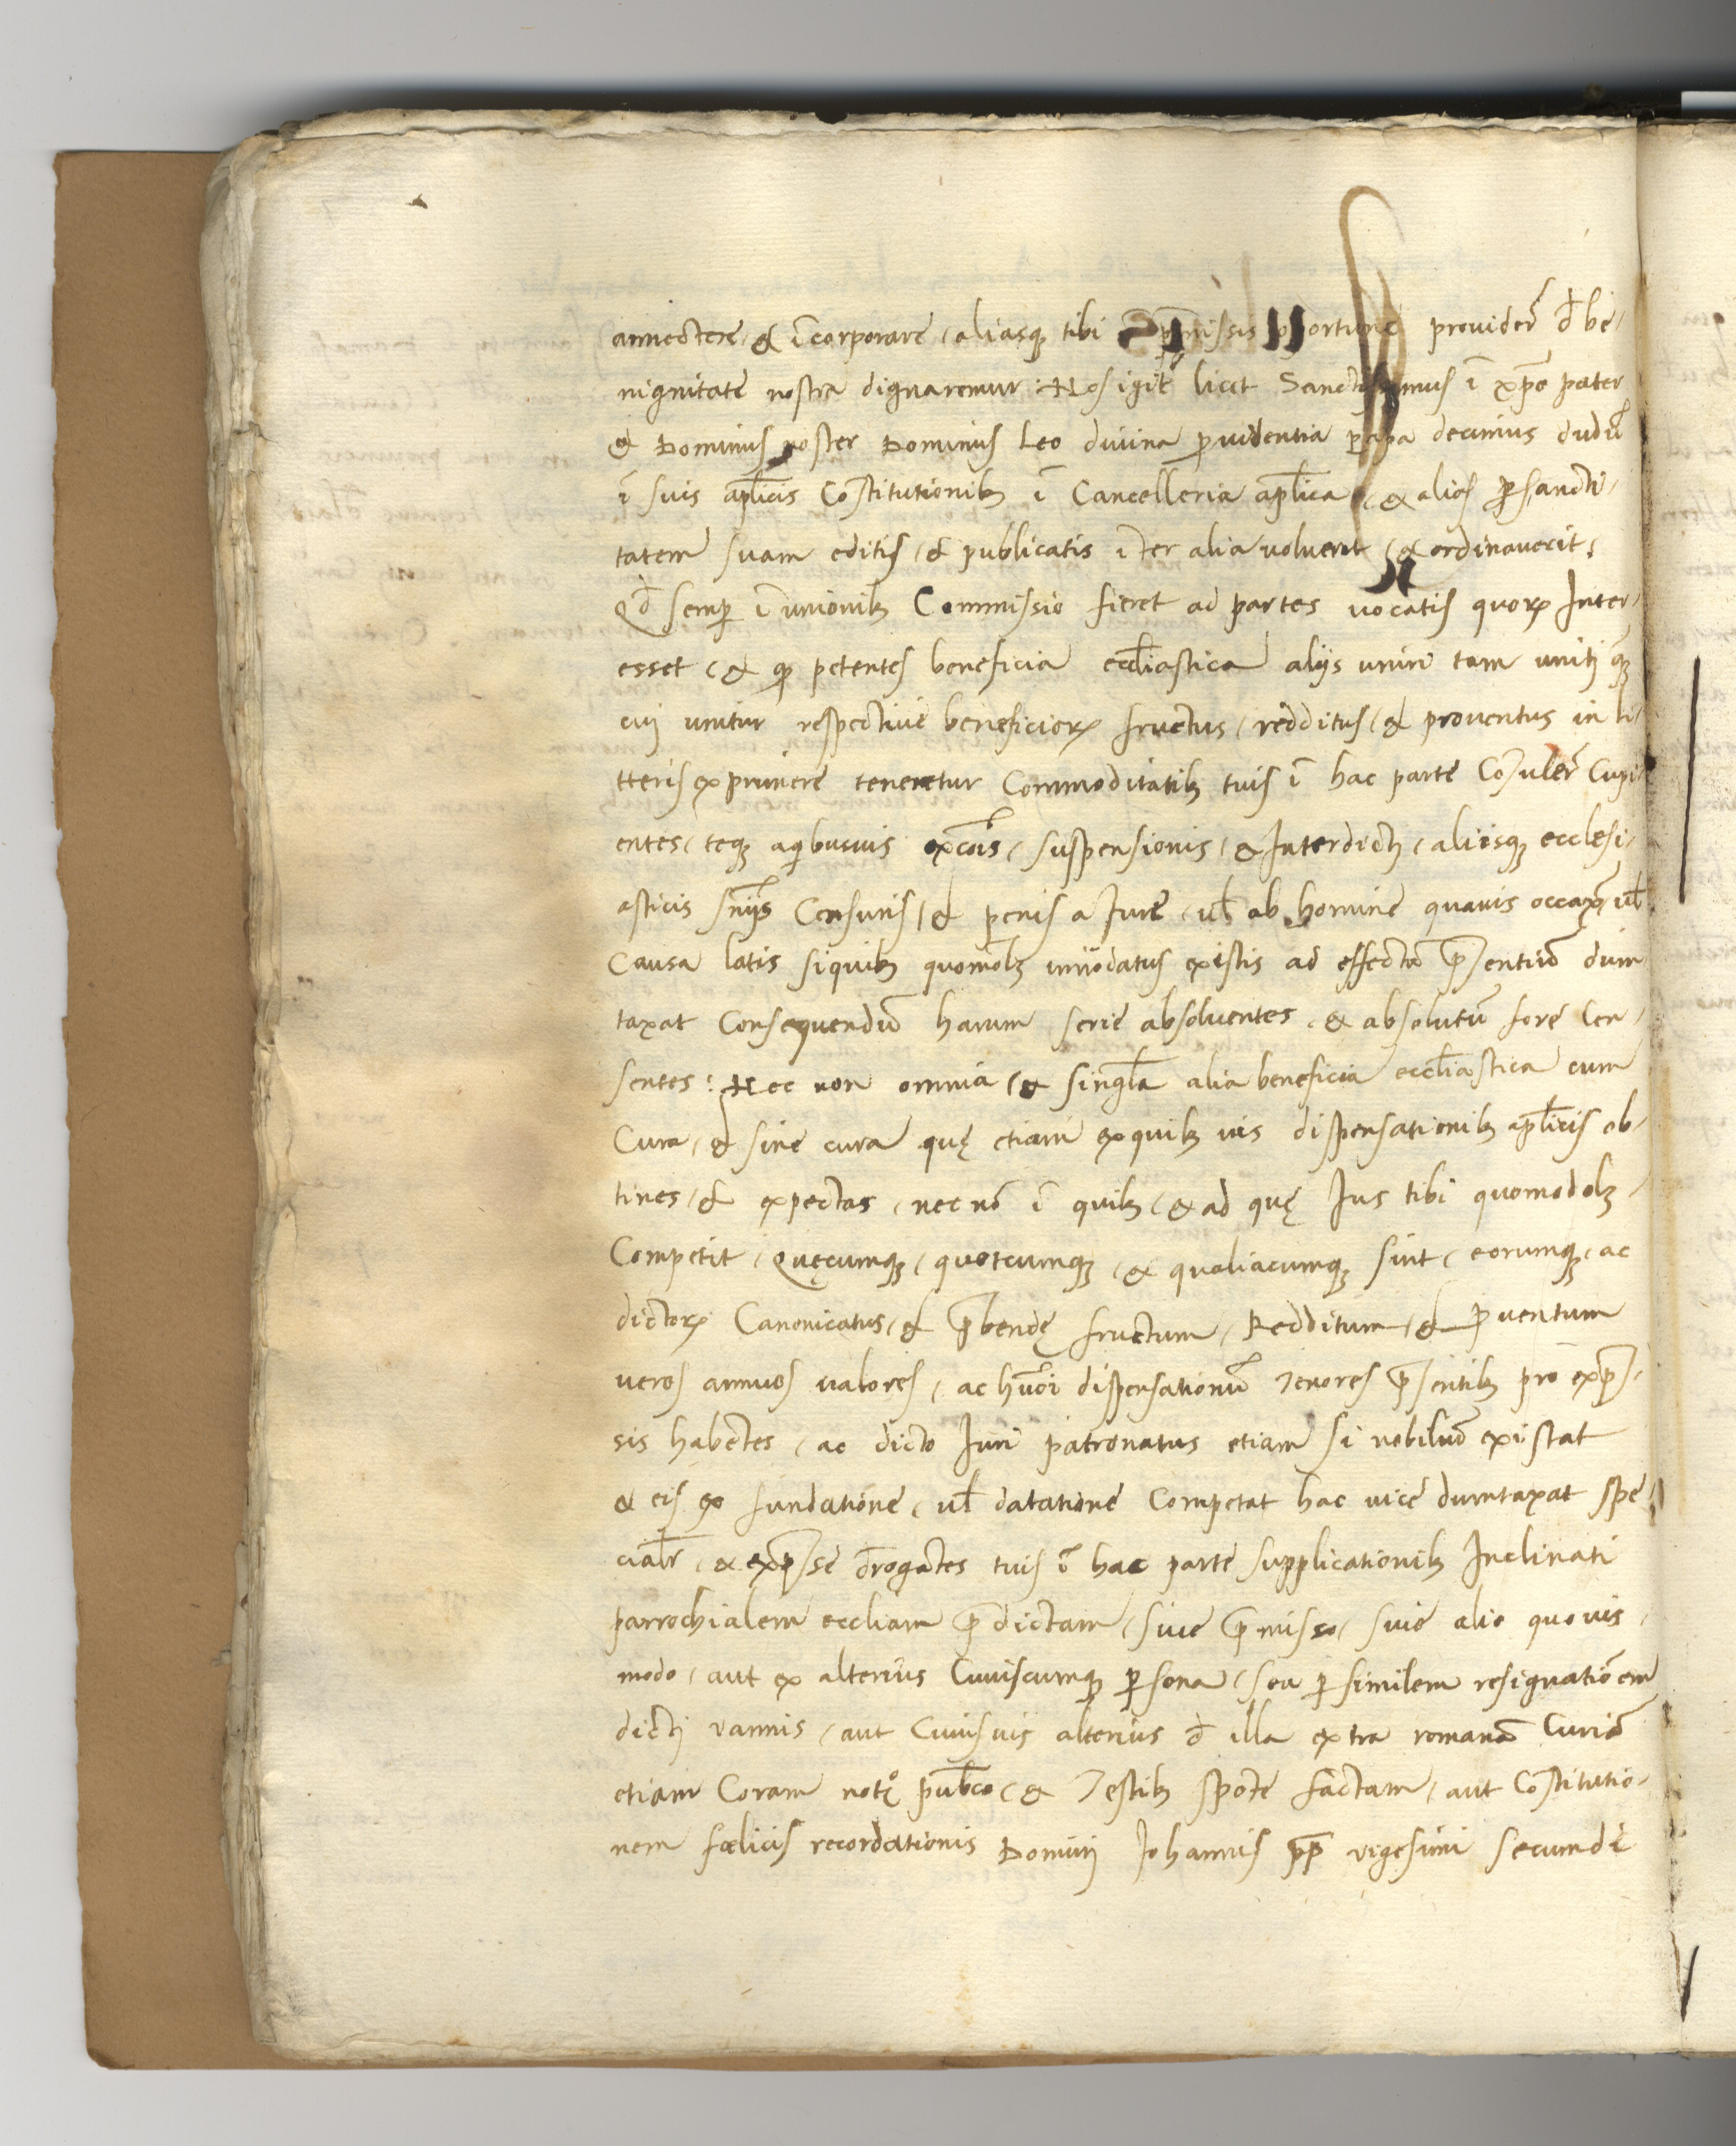 annectere, & ĩcorporare, aliasqꝫ tibi p̄missis oportune prouiderẽ đ be-
nignitate nostra dignaremur: Nos igit̃ licet Sanctissimus ĩ xp̃o pater
& Dominus noster Dominus Leo diuina ꝓuidentia papa decimus dudũ
ĩ suis aplicis Cõstitutionibꝫ ĩ Cancelleria aplica, & alios ꝑ sancti-
tatem suam editis, & publicatis ĩter alia voluerit, & ordinauerit,
Qđ semꝑ ĩ unionibꝫ Commissio fieret ad partes vocatis quoꝝ Inter-
esset, & qꝫ petentes beneficia eccl̃iastica alijs uniri tam uniti qꝫ
cuj unitur respectiue beneficioꝝ fructus, redditus, & prouentus in li-
tteris exprimere teneretur Commoditatibꝫ tuis ĩ hac parte Cõsulerẽ Cupi-
entes, teqꝫ aqibusuis excõis, suspensionis, & Interdictj, aliisqꝫ ecclesi-
asticis sñijs Censuris, & penis a Jure, ul̃ ab homine quauis occaxõe, ul̃
Causa latis siquibꝫ quomõlꝫ innodatus existis ad effectũ p̄sentiũ dum
taxat Consequendũ harum serie absoluentes, & absolutũ fore Cen-
sentes: Nec non omnia, & singl̃a alia beneficia eccl̃iastica cum
Cura, & sine cura quę etiam ex quibꝫ uis dispensationibꝫ apl̃icis ob-
tines, & expectas, nec nõ ĩ quibꝫ, & ad quę Jus tibi quomodolꝫ-
Competit, Quęcumqꝫ, quotcumqꝫ, & qualiacumqꝫ sint, eorumqꝫ, ac
dictoꝝ Canonicatus, & p̄bendę fructum, Redditum, & ꝓuentum
ueros annuos ualores, ac hmõi dispensationũ Tenores p̄sentibꝫ pro exp̄s-
sis habẽtes, ac dicto Juri patronatus etiam si nobiliũ existat
& eis ex fundatione, ul̃ datatione Competat hac uice dumtaxat spe-
cialr̃, & exp̄sse đrogãtes tuis ĩ hac parte supplicationibꝫ Inclinati
parrochialem eccliam p̄dictam, siue p̄misso, siue alio quouis,
modo, aut ex alterius Cuiuscumqꝫ ꝑsona, seu ꝑ similem resignatiõem
dictj vannis, aut Cuiusuis alterius đ illa extra romanã Curiã
etiam Coram notꝫ pubco, & Testibꝫ spõte factam, aut Cõstitutio-
nem fœlicis recordationis Dominj Johannis pp̄ vigesimi secundi